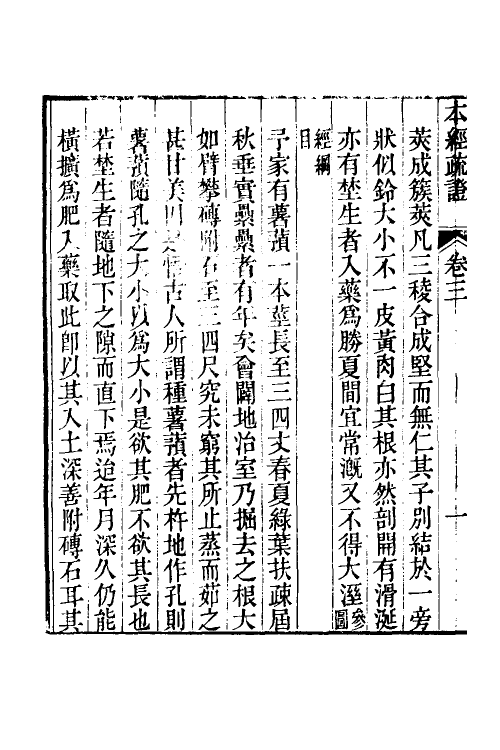 本經疏證
卷三
一
莢成簇莢凡三稜合成堅而無仁其子別結於一旁
狀似鈴大小不一皮黃肉白其根亦然剖開有滑涎
亦有埜生者入藥爲勝夏間宜常漑又不得大溼參圖
經綱
目
予家有薯蕷一本莖長至三四丈春夏綠葉扶疎屆
秋垂實纍纍者有年矣會闢地治室乃掘去之根大
如臂攀磚附石至三四尺究未窮其所止蒸而茹之
甚甘美因是悟古人所謂種薯蕷者先杵地作孔則
薯蕷隨孔之大小以爲大小是欲其肥不欲其長也
若埜生者隨地下之隙而直下焉迨年月深久仍能
橫擴爲肥入藥取此卽以其入土深善附磚石耳其